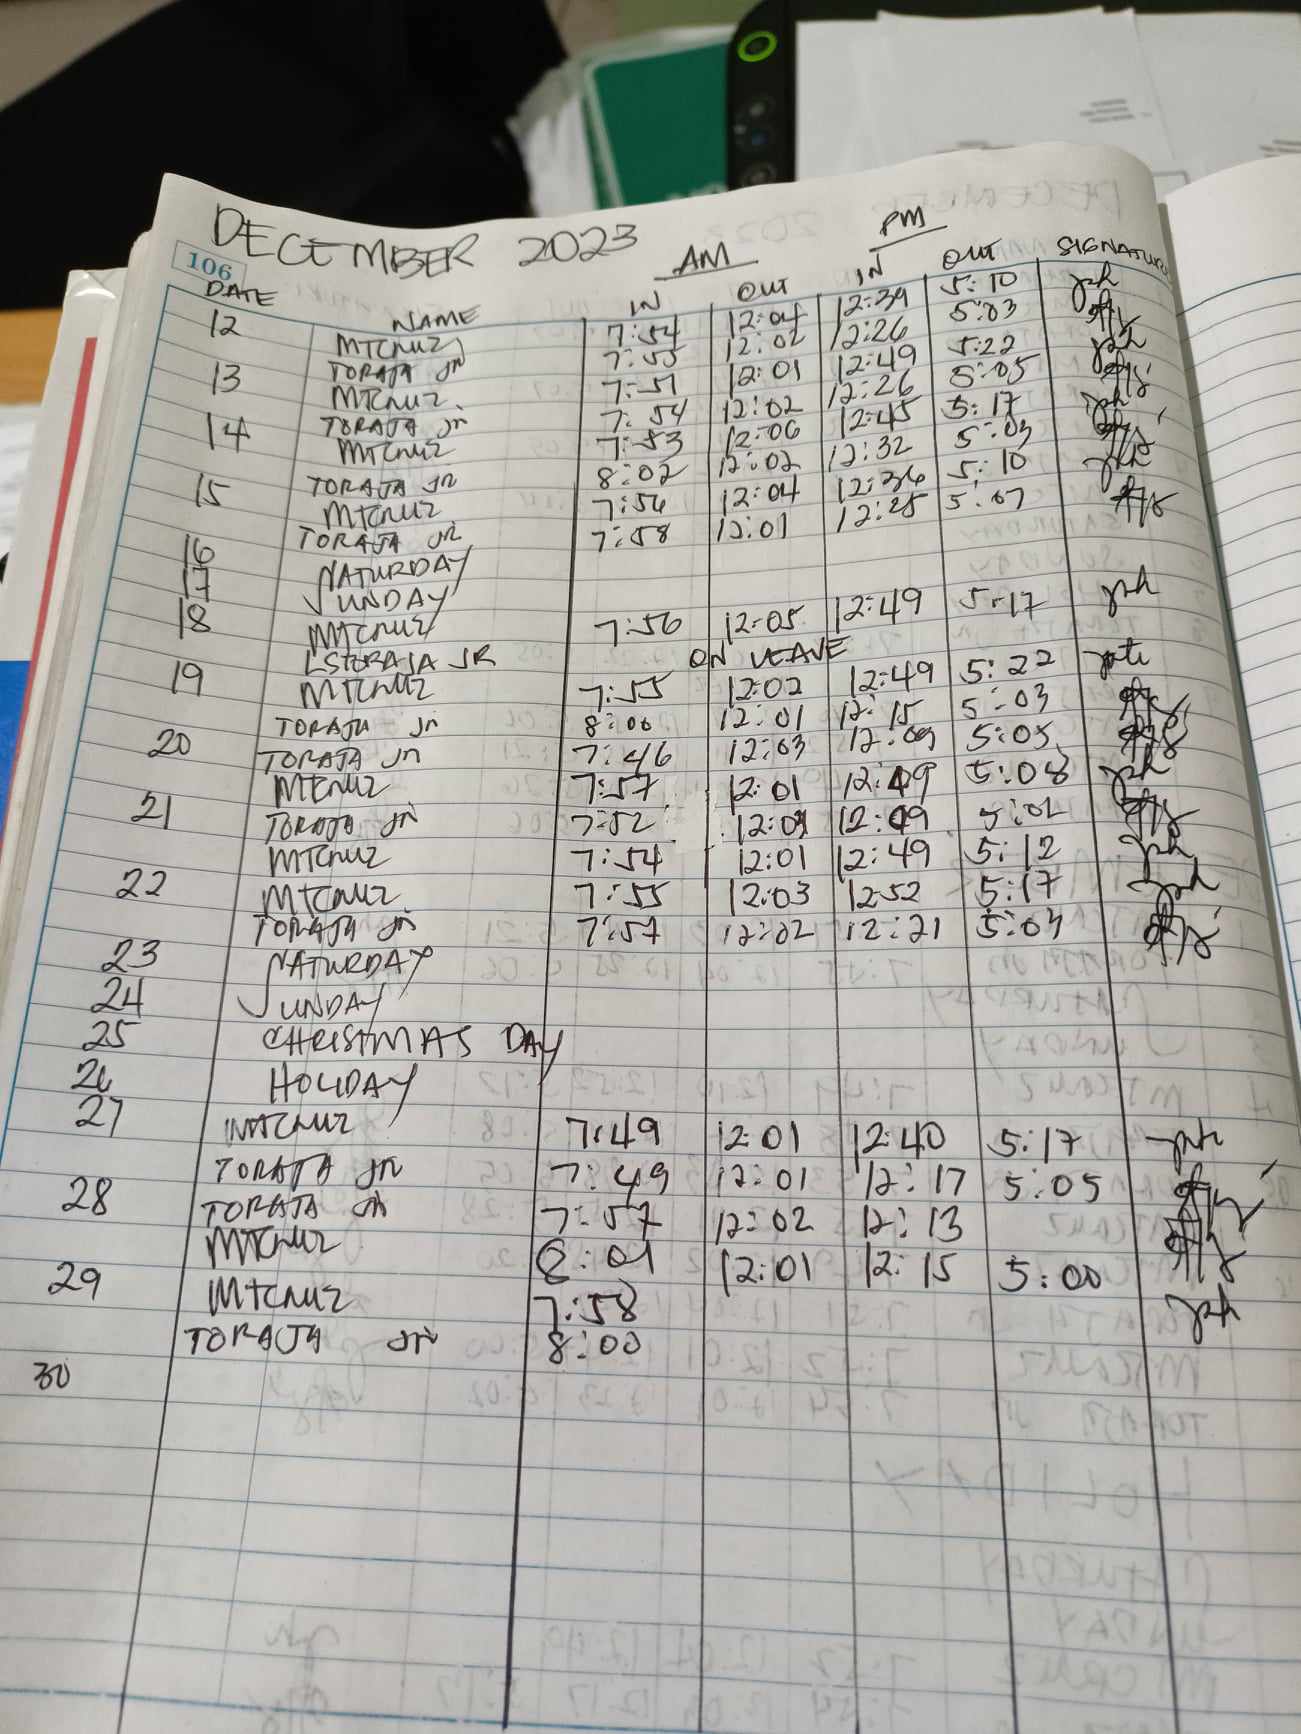 DECEMBER 2023
106
AM PM
DATE NAME IN OUT IN OUT SIGNATURE
12 MTCRUZ 7:54 12:04 12:39 5:10
TORAJA JR 7:55 12:02 12:26 5:03
13 MTCRUZ 7:51 12:01 12:49 5:22
TORAJA JR 7:54 12:02 12:26 5:05
14 MTCRUZ 7:53 12:06 12:45 5:17
TORAJA JR 8:02 12:02 12:32 5:03
15 MTCRUZ 7:56 12:04 12:36 5:10
TORAJA JR 7:58 12:01 12:25 5:07
16 SATURDAY
17 SUNDAY
18 MTCRUZ 7:56 12:05 12:49 5:17
LSTORAJA JR ON LEAVE
19 MTCRUZ 7:55 12:02 12:49 5:22
TORAJA JR 8:00 12:01 12:15 5:03
20 TORAJA JR 7:46 12:03 12:09 5:05
MTCRUZ 7:57 12:01 12:49 5:08
21 TORAJA JR 7:52 12:03 12:09 5:02
MTCRUZ 7:54 12:01 12:49 5:12
22 MTCRUZ 7:55 12:03 12:52 5:17
TORAJA JR 7:57 12:02 12:21 5:03
23 SATURDAY
24 SUNDAY
25 CHRISTMAS DAY
26 HOLIDAY
27 MTCRUZ 7:49 12:01 12:40 5:17
TORAJA JR 7:49 12:01 12:17 5:05
28 TORAJA JR 7:57 12:02 12:13
MTCRUZ 8:01 12:01 12:15 5:00
29 MTCRUZ 7:58
TORAJA JR 8:00
30